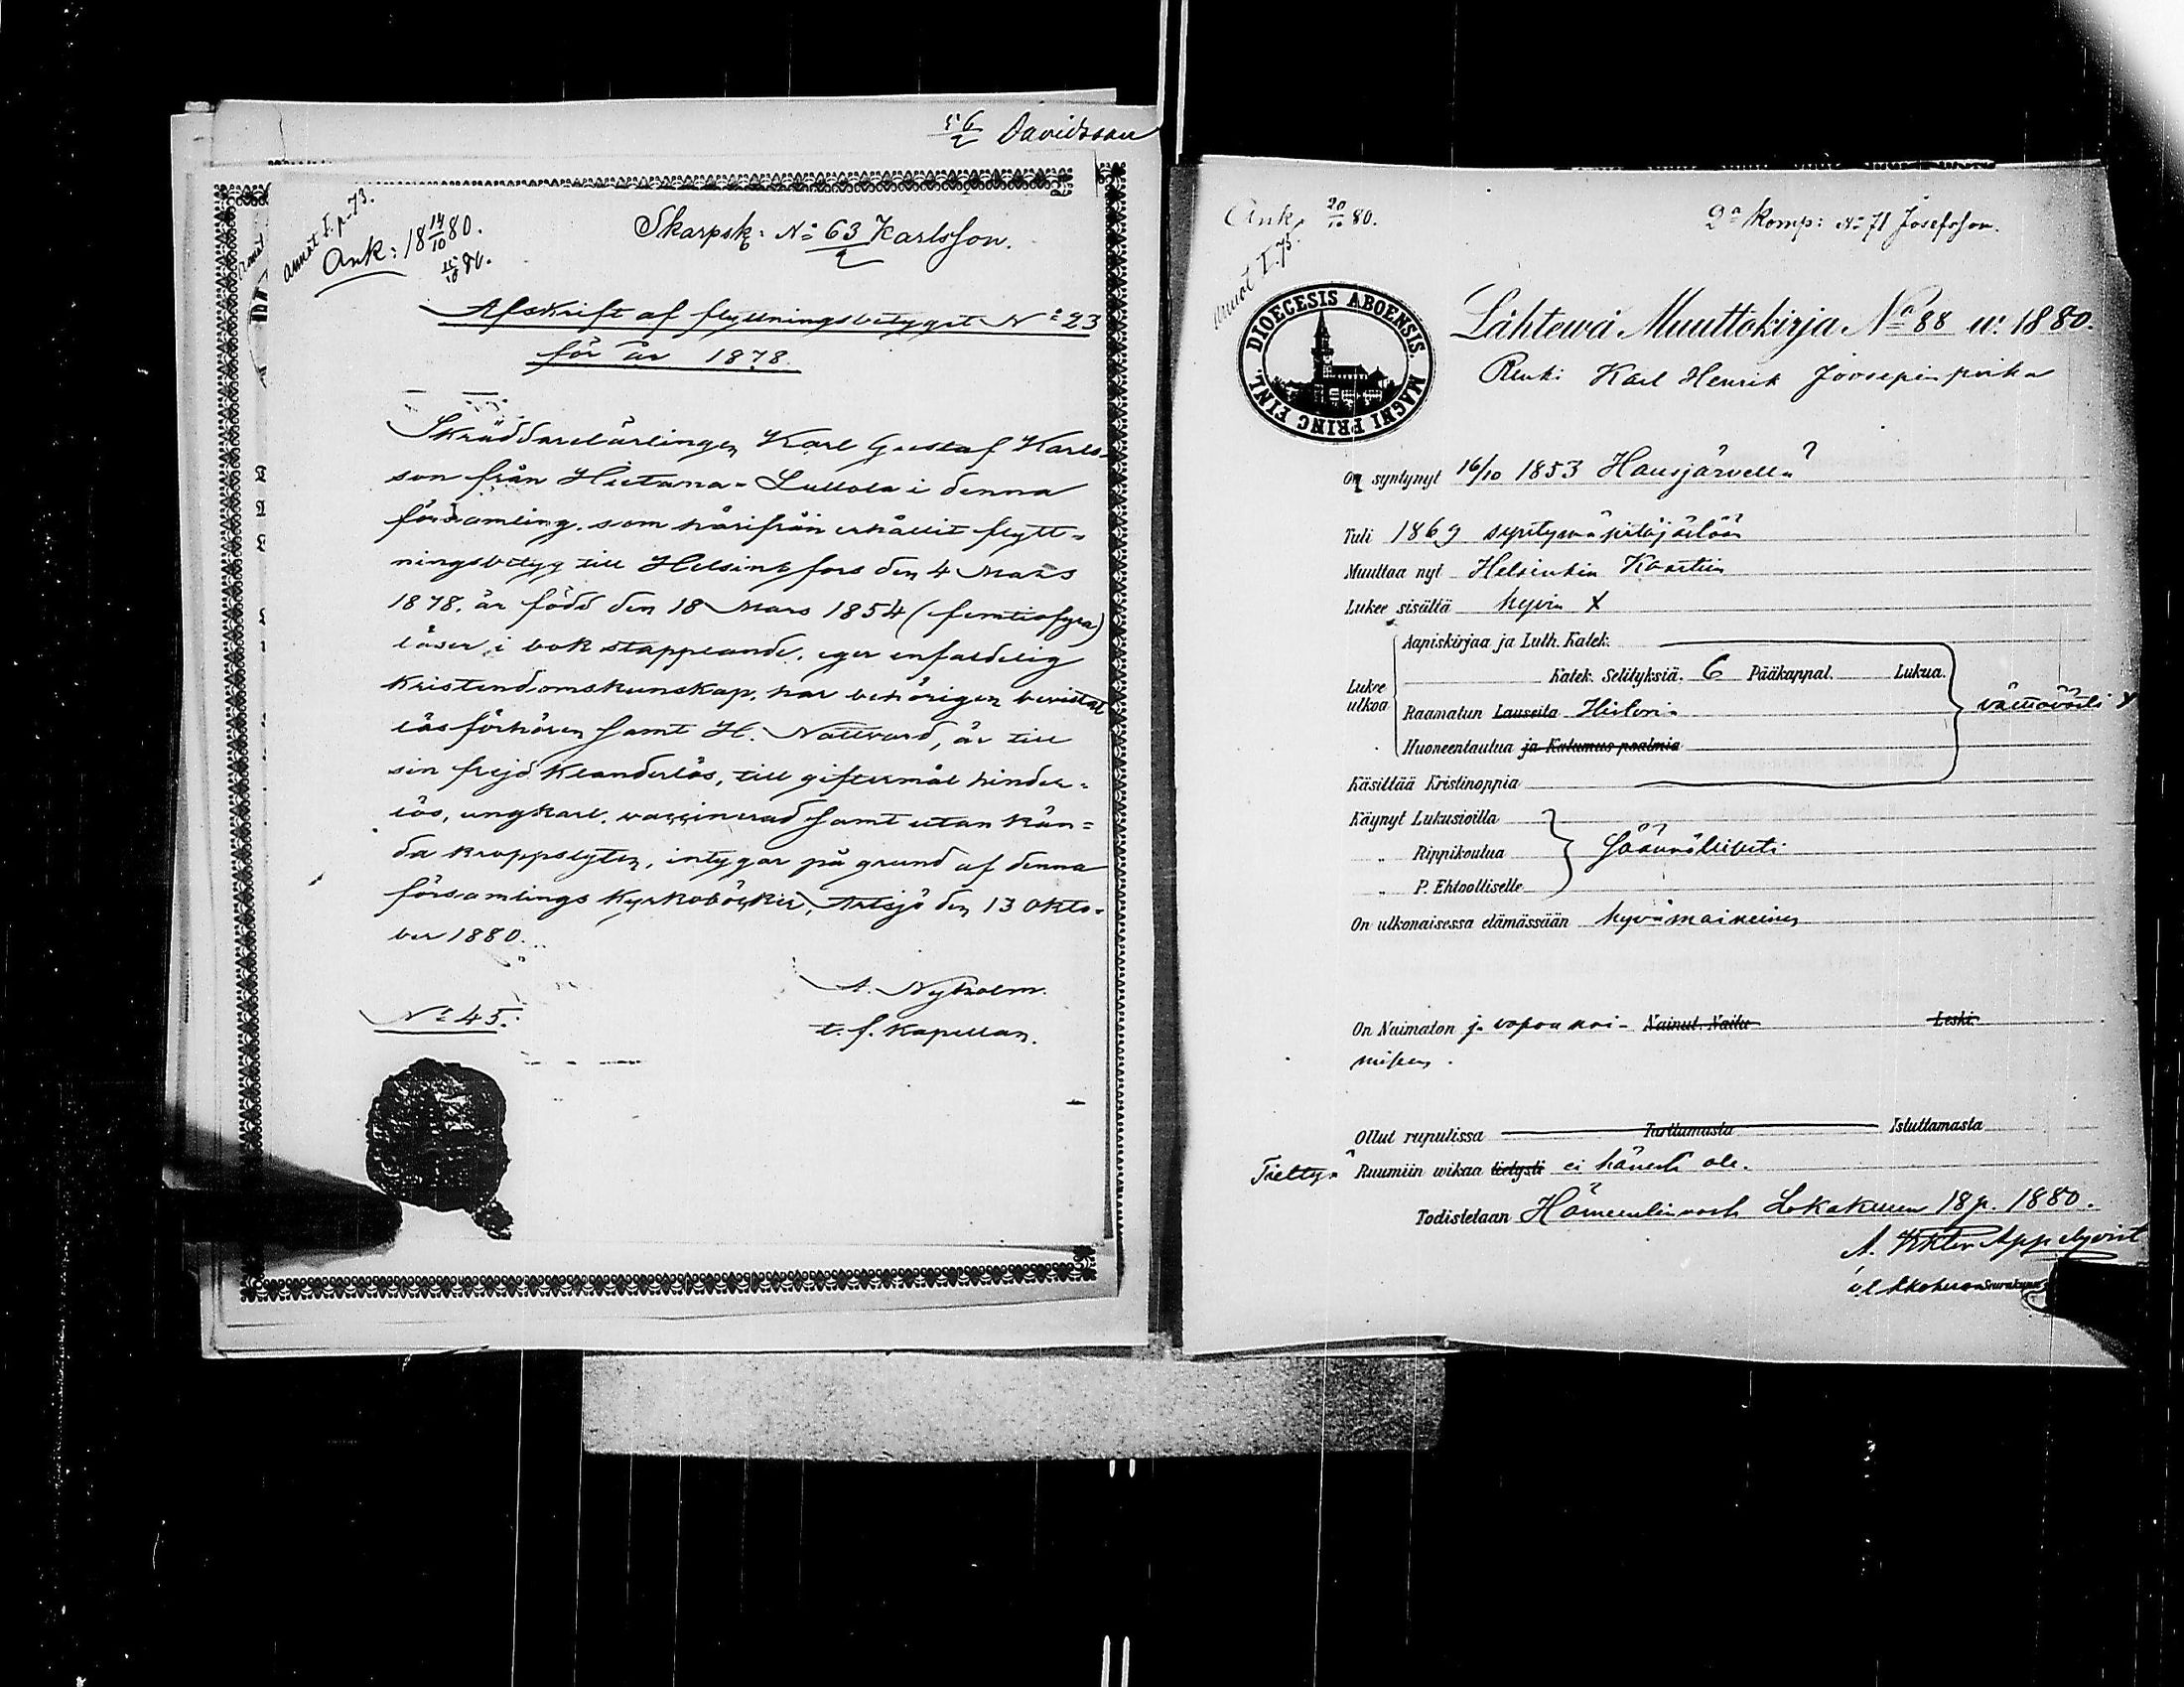 56/2 Davidsson
annot I. p. 73.
Ank: 18 14/10 80.
15/10 80.
Skarpsk: No 63/2 Karlsson.
Afskrift af flyttningsbetyget No 23
för år 1878.
Skräddarelärlingen Karl Gustaf Karls-
son från Hietana-Sullola i denna
församling, som härifrån erhållit flytt-
ningsbetyg till Helsingfors den 4 Mars
1878, är född den 18 Mars 1854 (femtiofyra)
läser i bok stapplande, eger enfaldelig
kristendomskunskap, har behörigen bevistat
läsförhören samt H. Nattvard, är till
sin frejd klanderlös, till giftermål hinder-
lös, ungkarl, vaccinerad samt utan kän-
da kroppslyten, intygar på grund af denna
församlings kyrkoböcker, Artsjö den 13 Okto-
ber 1880.
A. Nyholm.
t. f. Kapellan.
No 45.
Ank. 20/10 80.
annot I. 75.
2a Komp: No 71 Josefsson.
DIOECESIS ABOENSIS. MAGNI PRINC FINL.
Lähtewä Muuttokirja No 88 w: 1880.
Renki Karl Henrik Joosepinpoika
On syntynyt 16/10 1853 Hausjärvellä
Tuli 1869 syntymäpitäjästään
Muuttaa nyt Helsinkin Kaartiin
Lukee sisältä hyvin X
Lukee ulkoa
Aapiskirjaa ja Luth. Katek.
Katek. Selityksiä. 6 Pääkappal. Lukua.
Raamatun Lauseita Historia
Huoneentaulua ja Katumus psalmia
välttävästi X
Käsittää Kristinoppia
Käynyt Lukusioilla
" Rippikoulua
" P. Ehtoolliselle
säännöllisesti
On ulkonaisessa elämässään hyvämaineinen
On Naimaton ja vapaa nai- Nainut. Naitu Leski.
misen.
Ollut rupulissa Tarttumasta Istuttamasta
Tiettyä Ruumiin wikaa tietysti ei hänessä ole.
Todistetaan Hämeenlinnassa Lokakuun 18 p. 1880.
A. Viktor Appelqvist